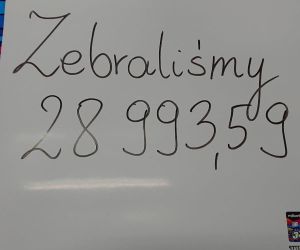 Zebraliśmy
28 993,59